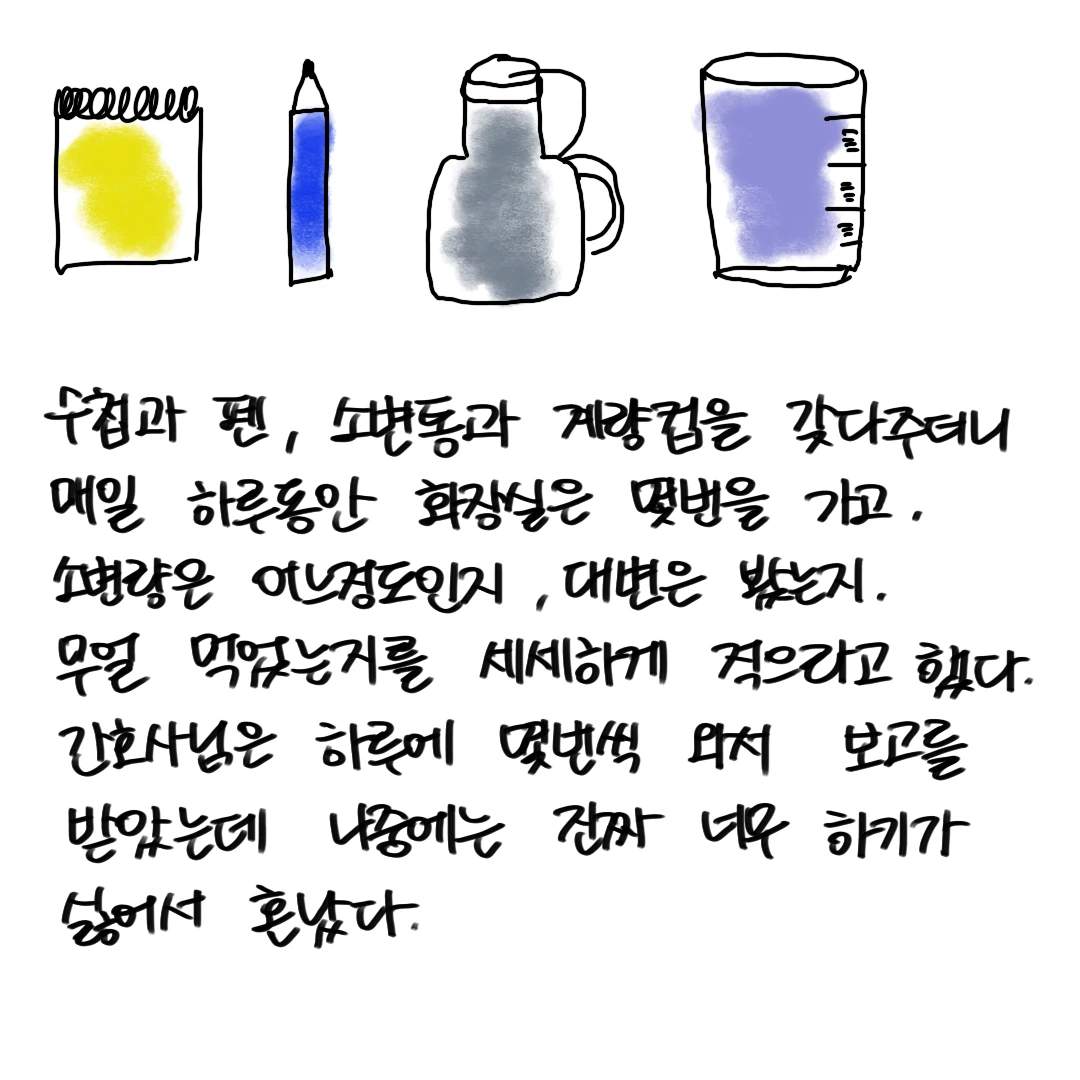 수첩과 펜, 소변통과 계량컵을 갖다주더니
매일 하루동안 화장실은 몇번을 가고.
소변량은 어느정도인지, 대변은 봤는지.
무얼 먹었는지를 세세하게 적으라고 했다.
간호사님은 하루에 몇번씩 와서 보고를
받았는데 나중에는 진짜 너무 하기가
싫어서 혼났다.